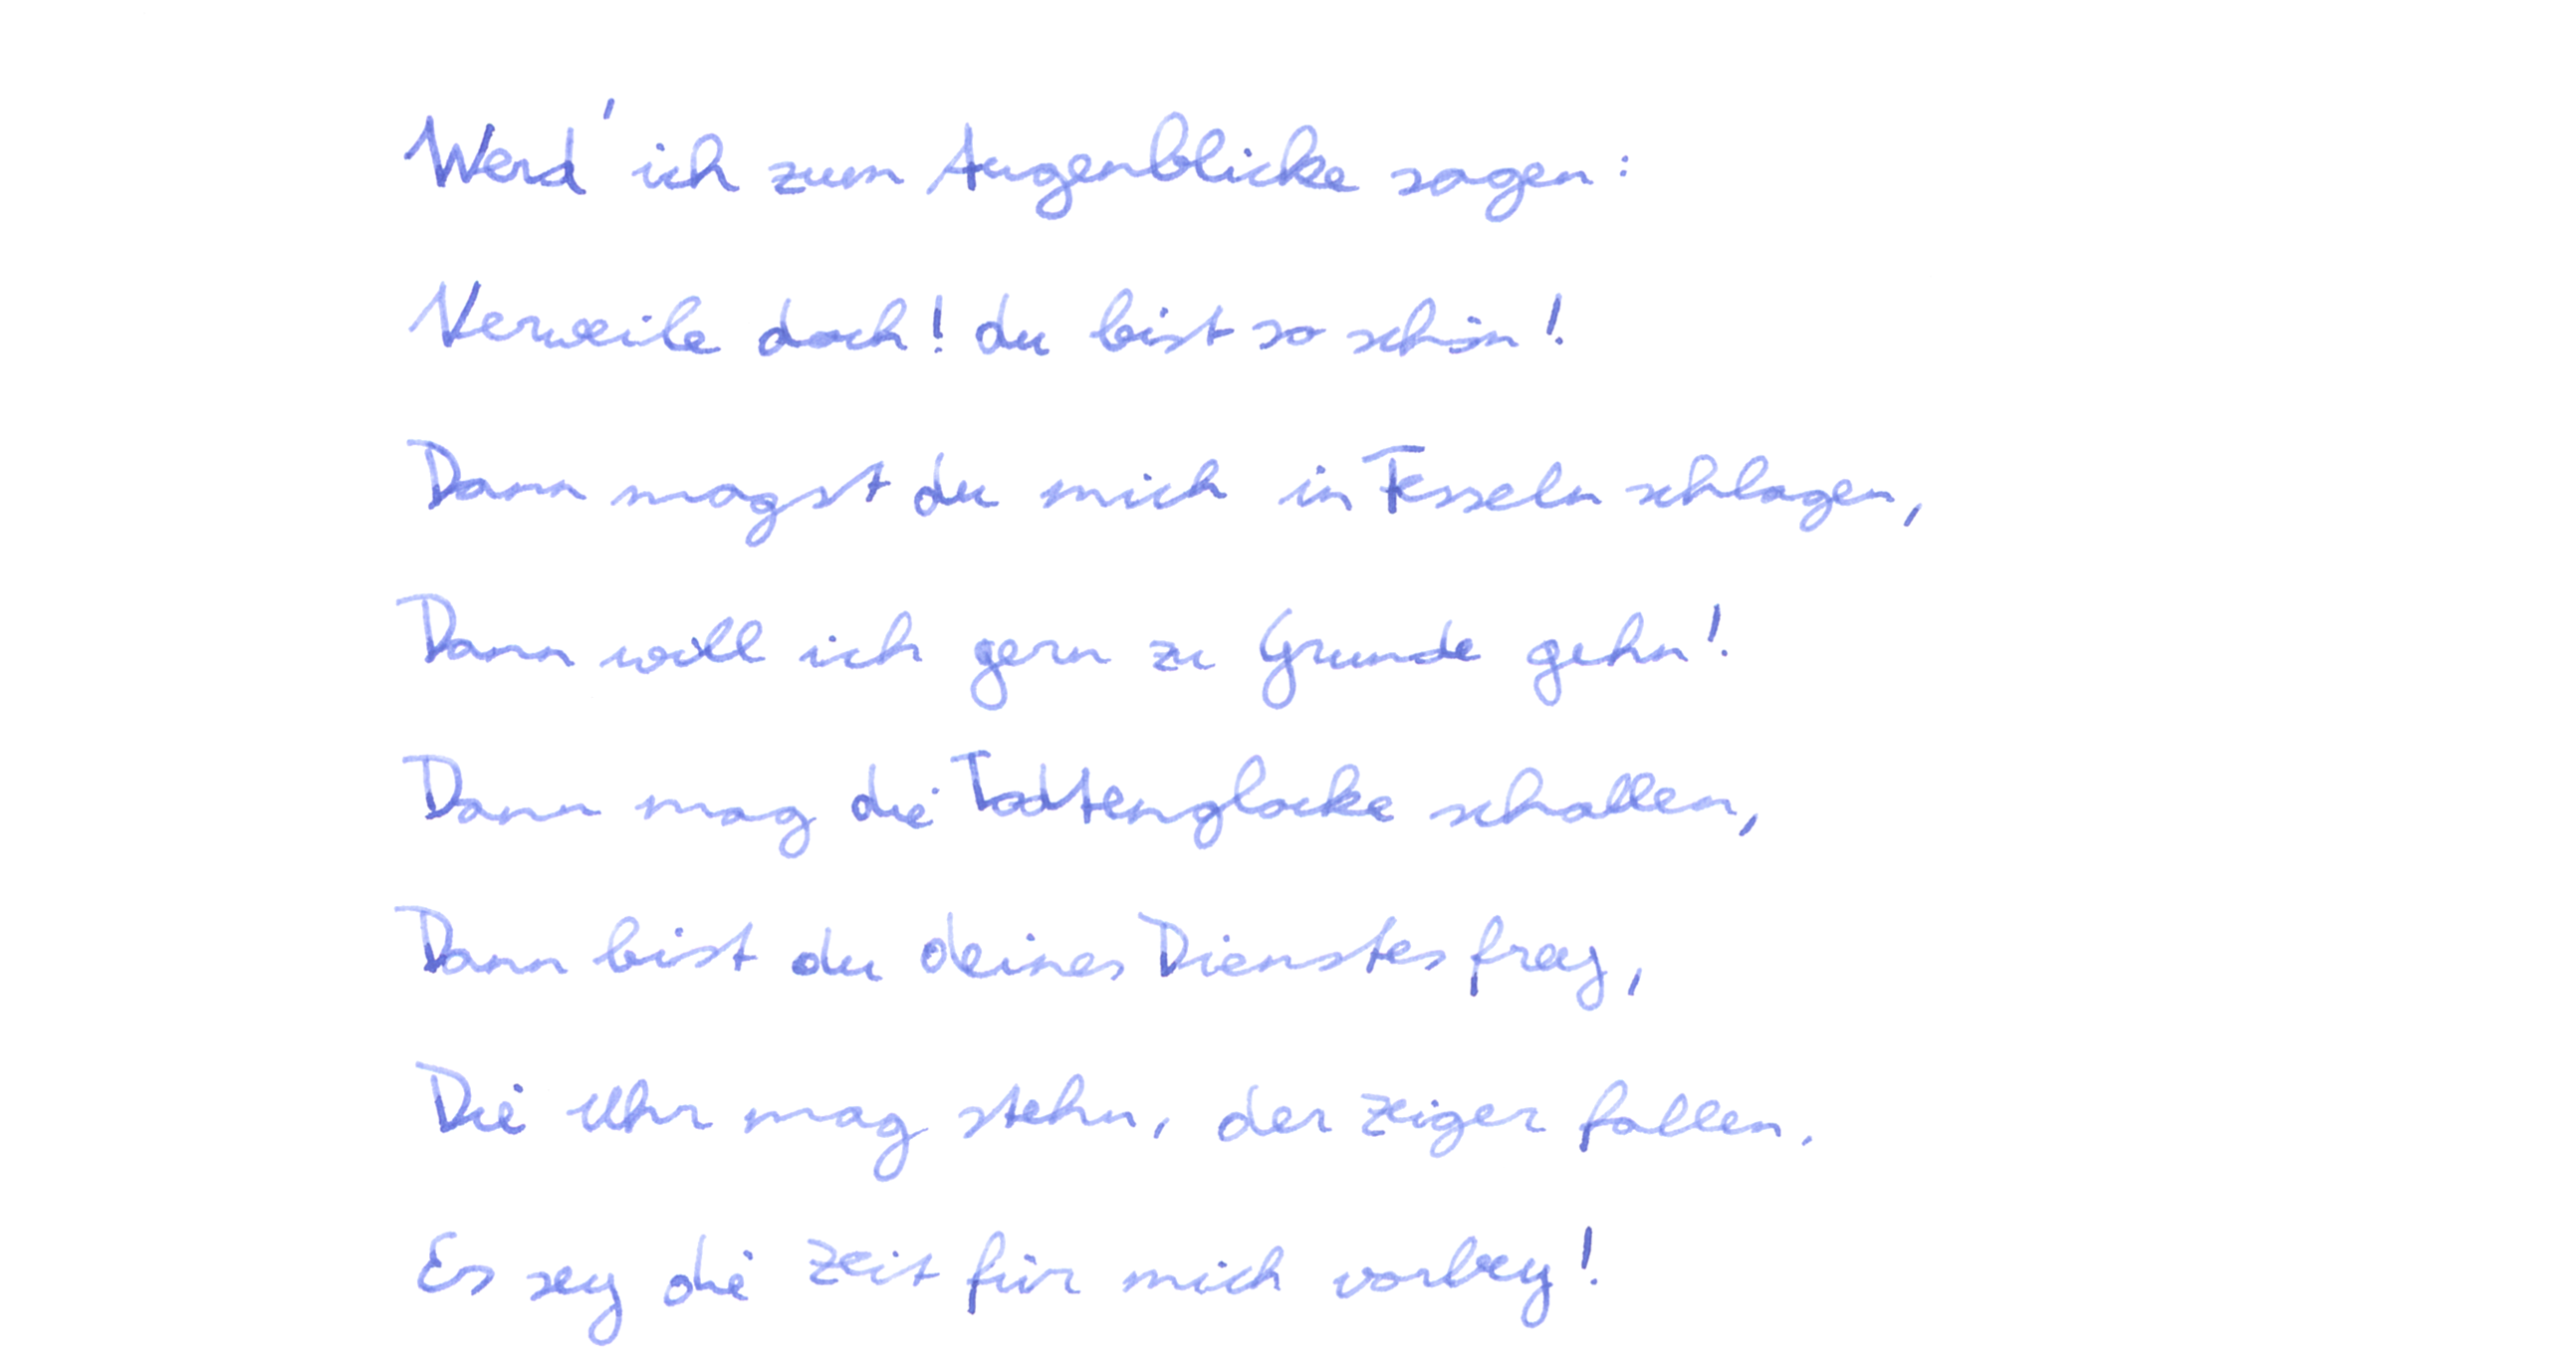 Werd' ich zum Augenblicke sagen:
Verweile doch! du bist so schön!
Dann magst du mich in Fesseln schlagen,
Dann will ich gern zu Grunde gehn!
Dann mag die Todtenglocke schallen,
Dann bist du deines Dienstes frey,
Die Uhr mag stehn, der Zeiger fallen.
Es sey die Zeit für mich vorbey!